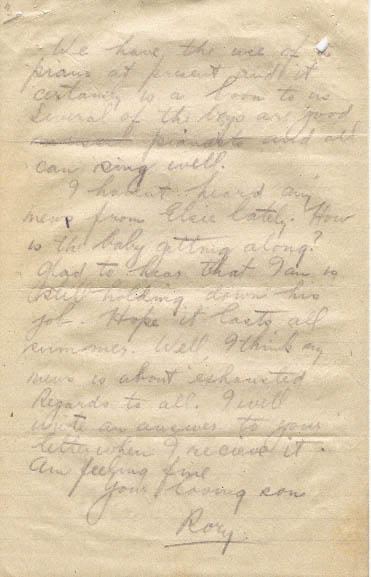 We have the use of a
piano at present and it
certainly is a boon to us
Several of the boys are good
pianists and all
can sing well.
I havent heard any
news from Elsie lately. How
is the baby getting along?
Glad to hear that Ian is
still holding down his
job. Hope it lasts all
summer. Well, I think my
news is about exhausted
Regards to all. I will
write an answer to your
letter when I recieve it.
Am feeling fine
Your loving son
Rory.